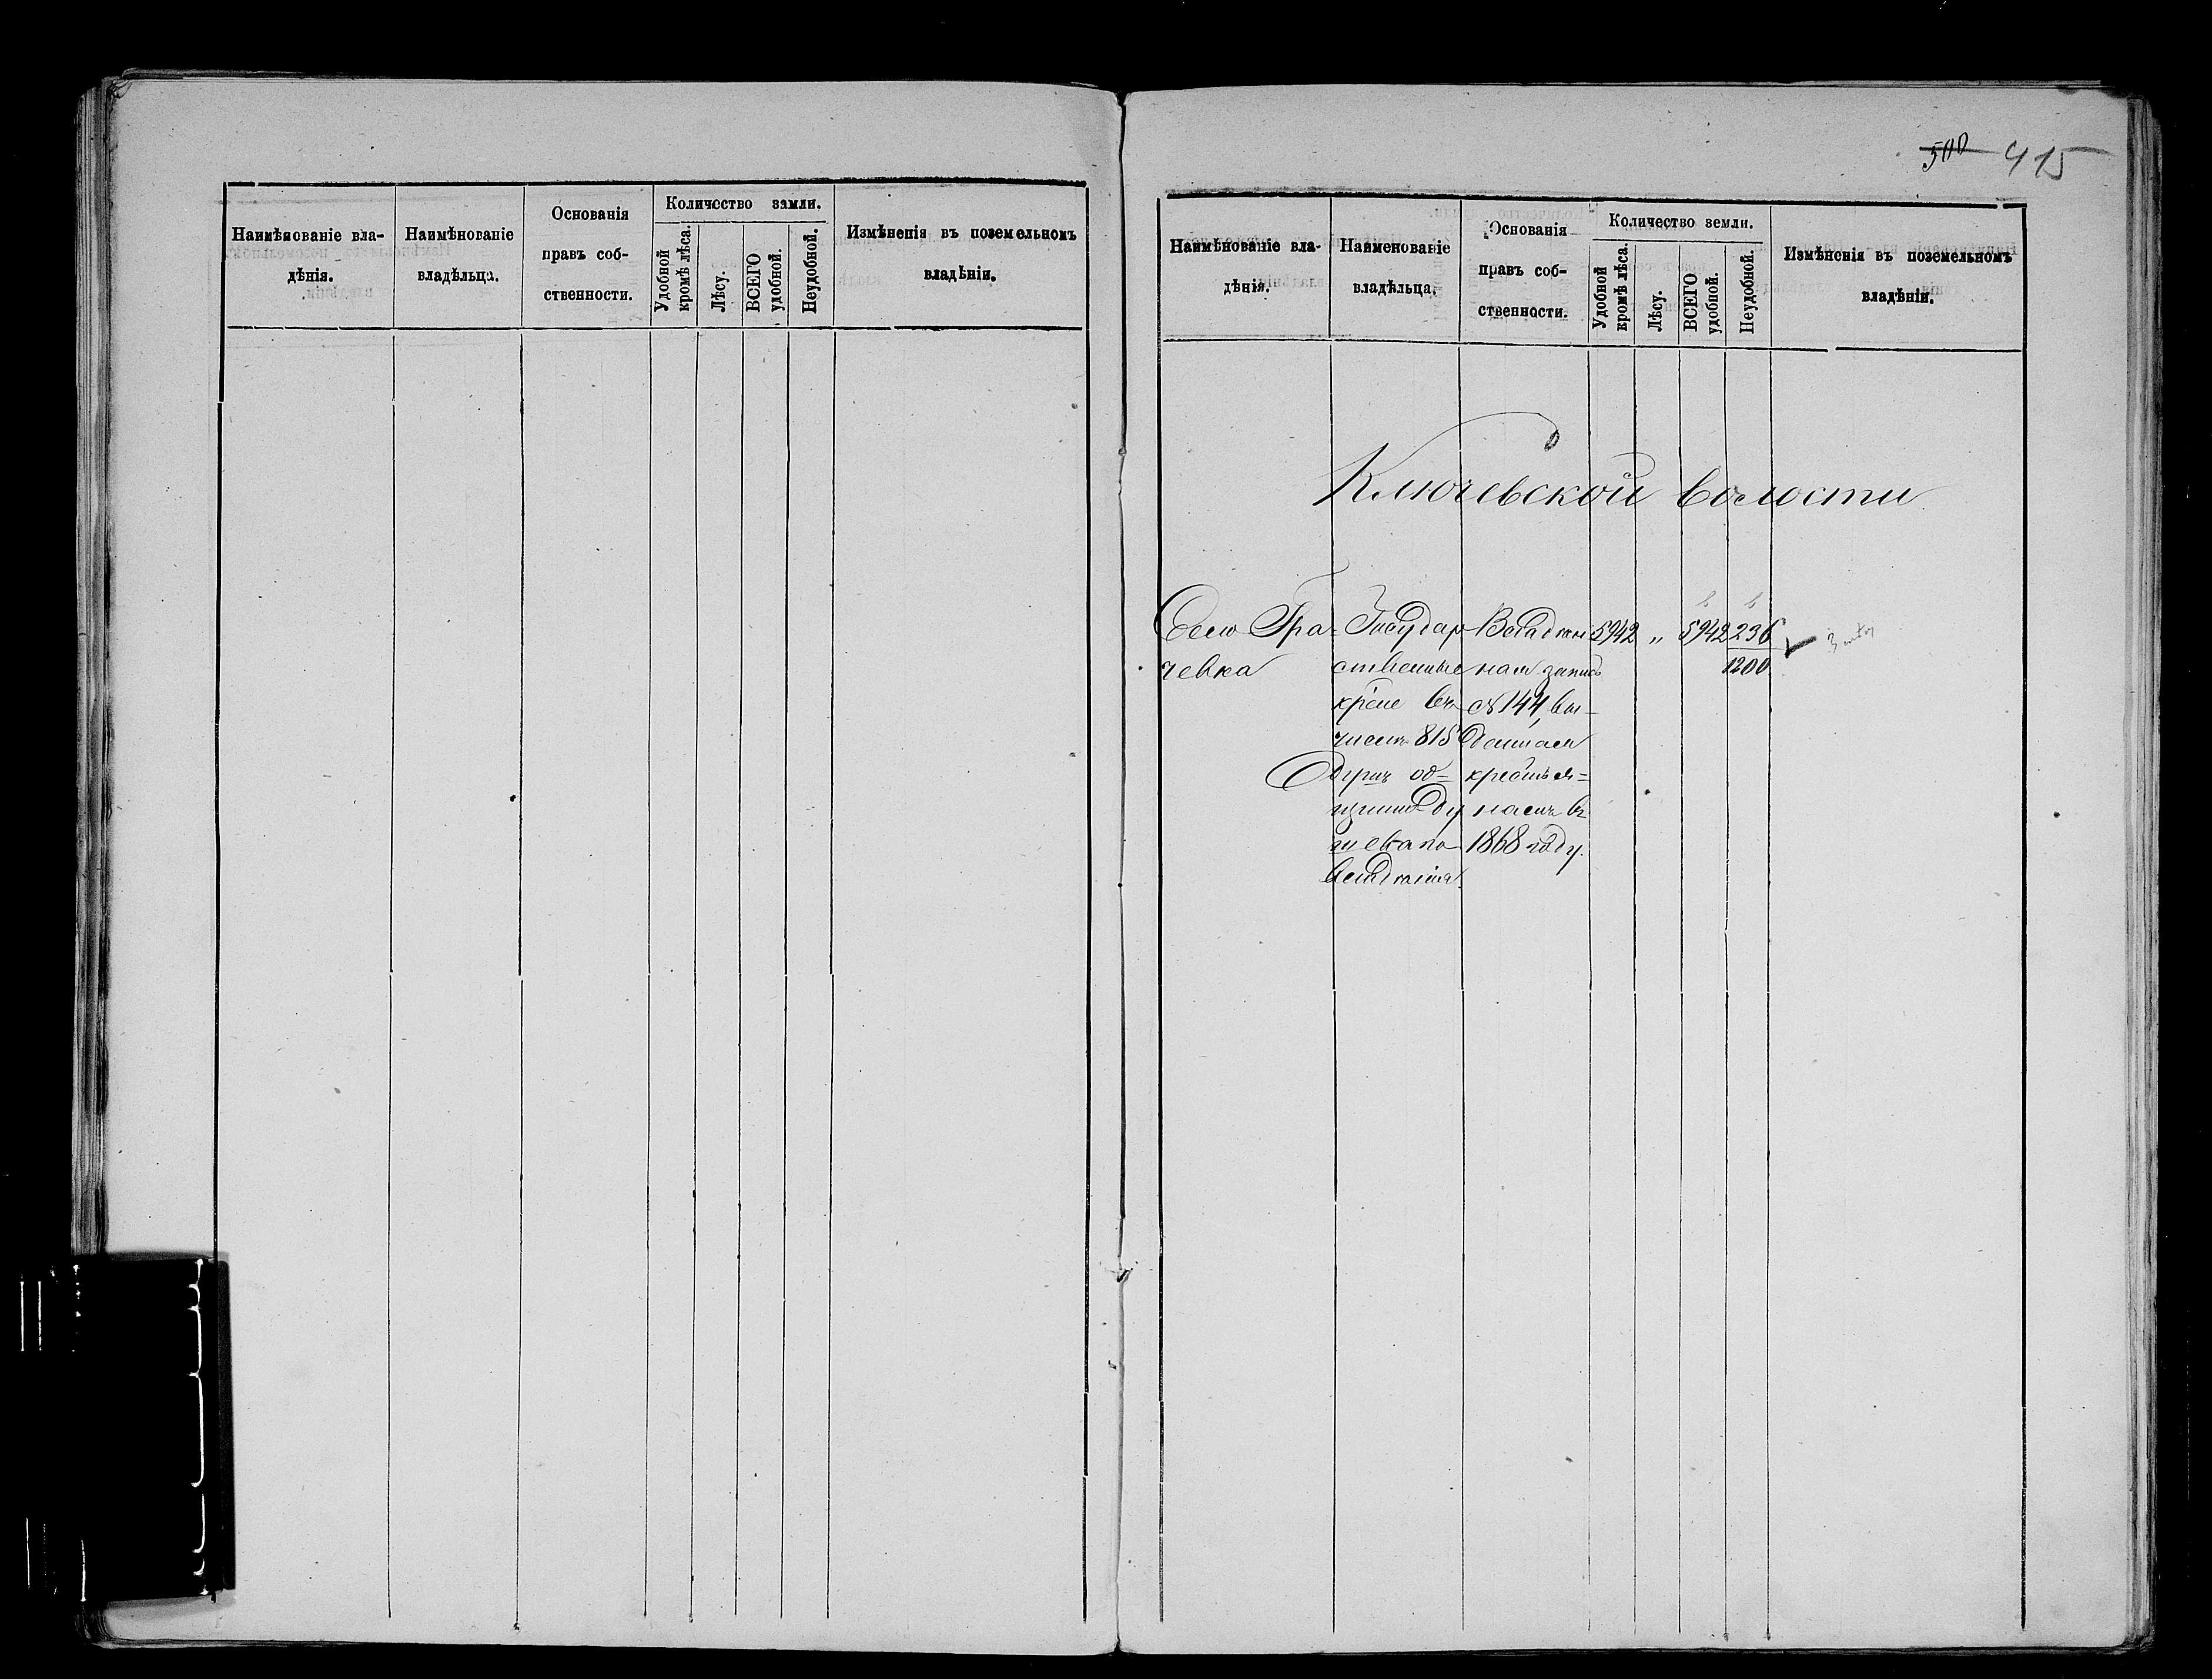 Наимѣнованіе вла-
дѣнія.
Наимѣнованіе
владѣльца.
Основанія
правъ соб-
ственности.
Количество земли.
Удобной
кромѣ лѣса.
Лѣсу.
ВСЕГО
удобной.
Неудобной.
Измѣненія въ поземельномъ
владѣніи.
500 415
Наимѣнованіе вла-
дѣнія.
Наименованіе
владѣльца.
Основанія
правъ соб-
ственности.
Количество земли.
Удобной
кромѣ лѣса.
Лѣсу.
ВСЕГО
удобной.
Неудобной.
Измѣненія въ поземельномъ
владѣніи.
Ключевской волости
Село Гра-
чевка
Государ
ственные
крѣне въ
числѣ 815
душъ об-
щинно ду
шеваго
владѣнія.
Владѣн
ная запись
№ 144, вы-
данная
крестья-
намъ въ
1868 году.
5942
"
5942
236
1200